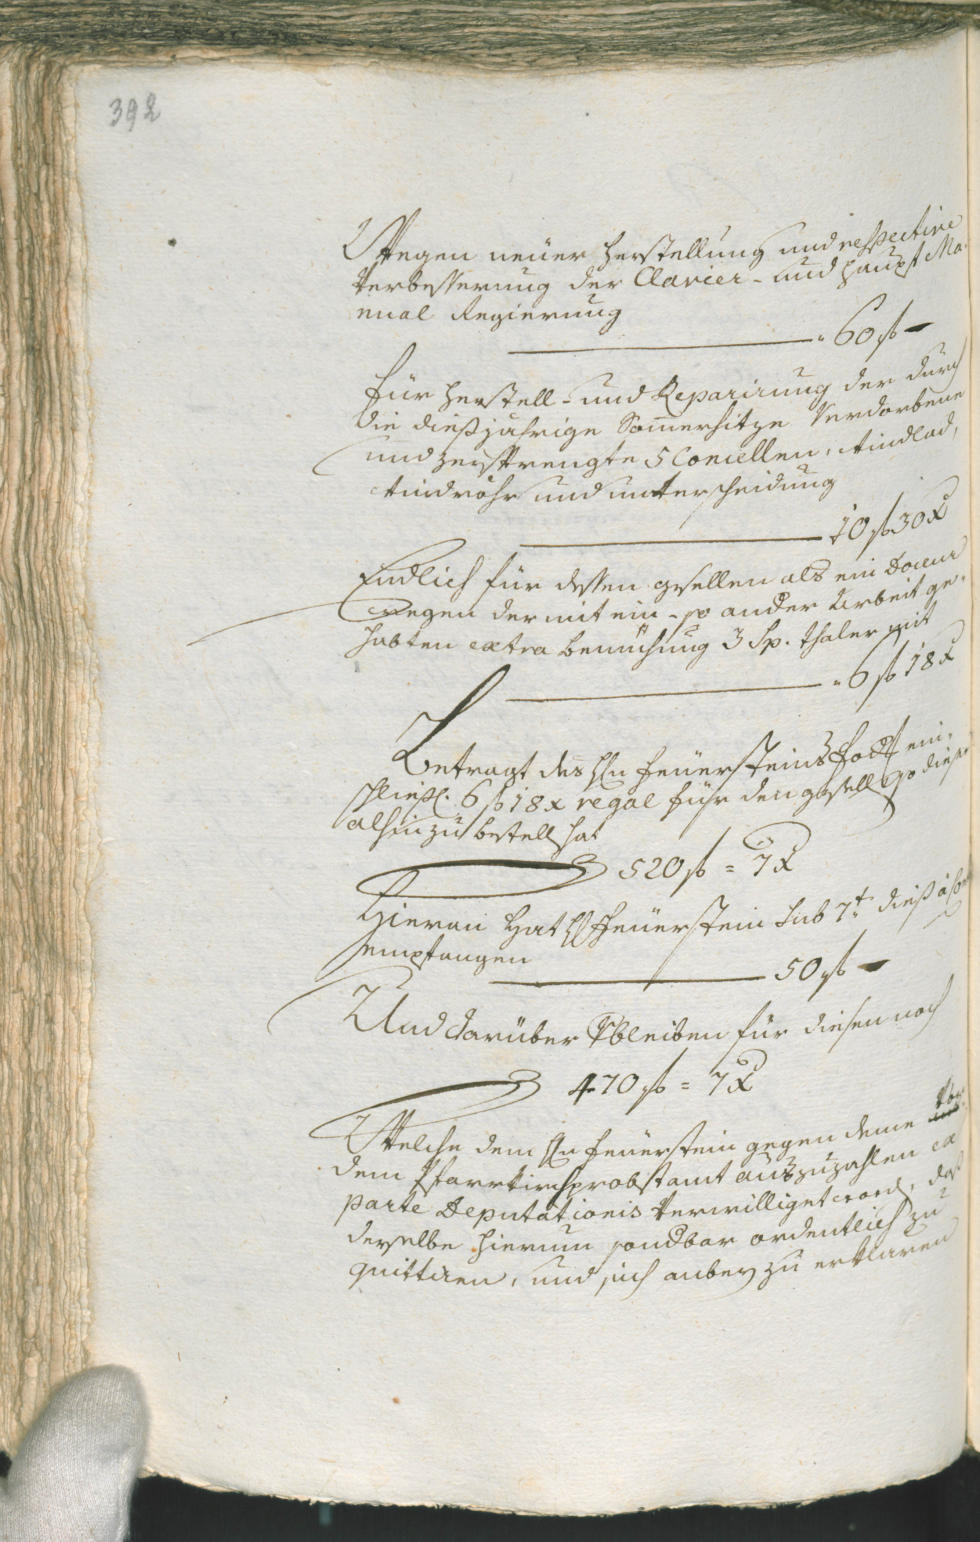 392
Wegen neüer herstellung und respective
Verbesserung der Clavier- und haupt Ma-
nual Regierung
60 f –
für herstell- und Reparirung der durch
die dießjährige Somerhitze Verdorbene
und zersprengte 5 Cancellen, Windlad,
Windröhr und unterscheidung
10 f 30 x
Endlich für dessen gesellen als ein Doceur
wegen der mit ein- so ander Arbeit ge-
habten extra bemühung 3 Sp. thaler mit
6 f 18 x
Betragt des Hn feüersteins ford ein-
schließl. 6 f 18 x regal für den gesell so dieser
alhin zu bestell hat
520 f = 7 x
Hievon Hat H Feüerstein sub 7t dieß à Co
empfangen
50 f –
Und darüber Vbleiben für diesen noch
470 f = 7 x
Welche dem Hn feüerstein gegen deme
dem Pfarrkirchprobstamt auszuzahlen ex
parte Deputationis Verwilliget word, daß
derselbe hierum sondbar ordentlich zu
quittiren, und sich anbey zu erklären